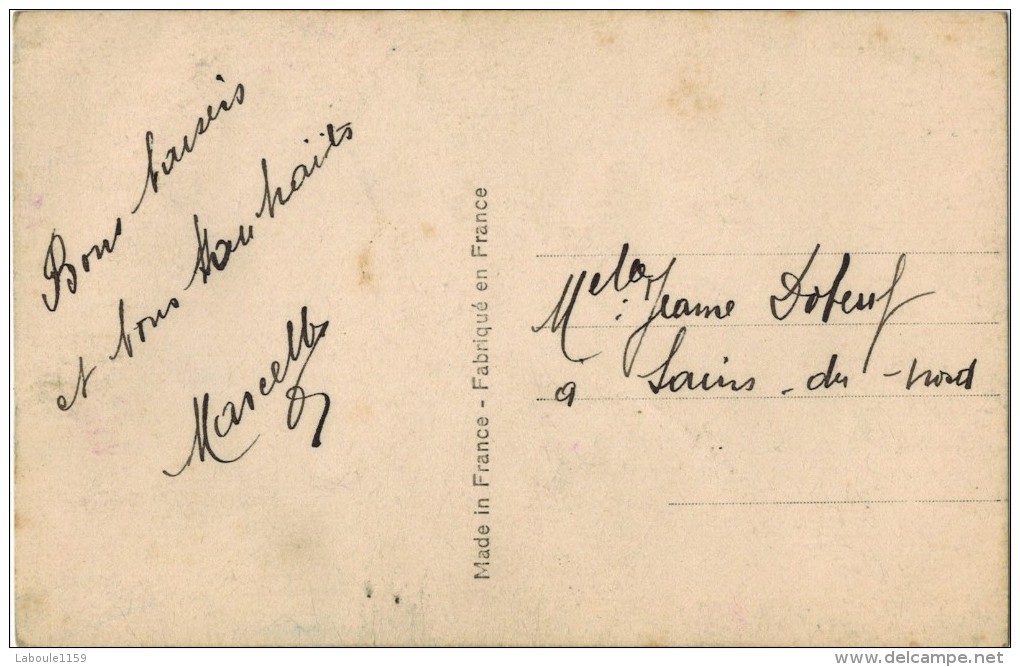 Bons baisers
et bons souhaits
Marcelle
Made in France - Fabriqué en France
Melle Jeanne
à Sains-du-nord
Laboule1159
www.delcampe.net